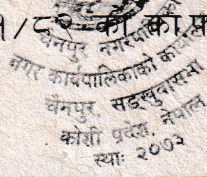 १/८२ को का.प्र
चैनपुर नगरपालिका
नगर कार्यपालिकाको कार्यालय
चैनपुर, सङ्खुवासभा
कोशी प्रदेश, नेपाल
स्था: २०७३